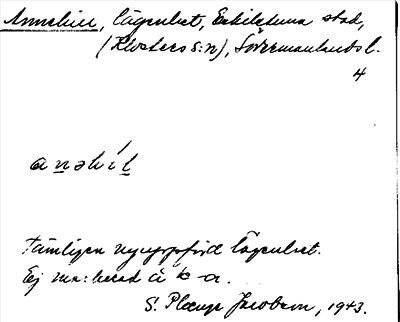 Annehill, lägenhet, Eskilstuna stad,
(Klosters s:n), Södermanlands l.
4
anəhíl
Tämligen nyuppförd lägenhet.
Ej
S. Plænge Jacobson, 1943.